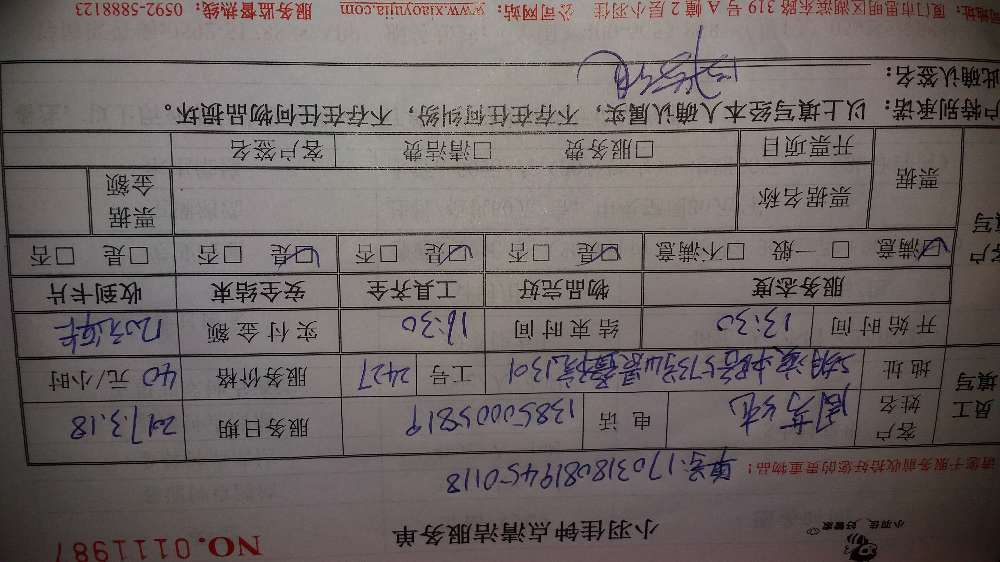 小羽佳 好管家
小羽佳钟点清洁服务单 NO.0111987
单号:170318081945-0118
请您于服务前收拾您的贵重物品:
员工填写
客户姓名 电话 13850005819 服务日期 2017.3.18
地址 工号 2427 服务价格 40 元/小时
开始时间 13:30 结束时间 16:30 实付金额
客户填写
服务态度 物品完好 工具齐全 安全结束 收到卡片
☑满意 □一般 □不满意 ☑是 □否 ☑是 □否 ☑是 □否 □是 □否
票据 票据名称 票据金额
开票项目 □服务费 □清洁费 客户签名
户特别承诺:以上填写经本人确认属实,不存在任何纠纷,不存在任何物品损坏。
此确认签名:
地址:厦门市思明区湖滨东路 319 号 A 幢 2 层小羽佳 公司网站:www.xiaoyujia.com 服务监督热线:0592-5888123